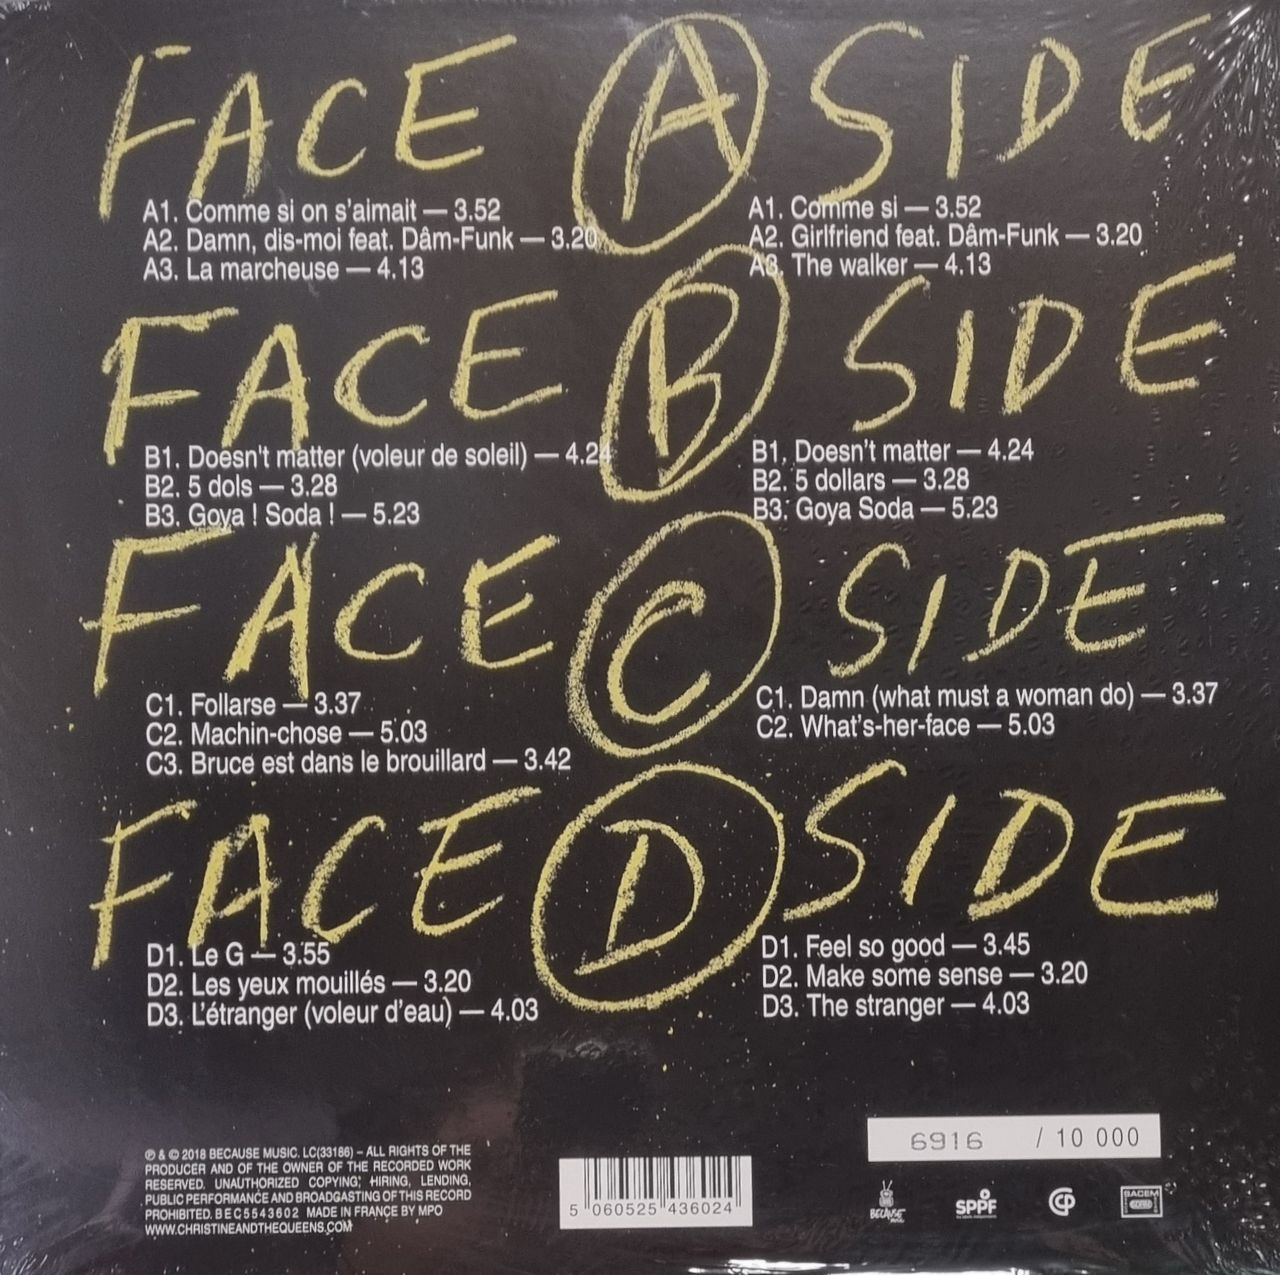 FACE A SIDE
A1. Comme si on s'aimait — 3.52
A2. Damn, dis-moi feat. Dâm-Funk — 3.20
A3. La marcheuse — 4.13
A1. Comme si — 3.52
A2. Girlfriend feat. Dâm-Funk — 3.20
A3. The walker — 4.13
FACE B SIDE
B1. Doesn't matter (voleur de soleil) — 4.24
B2. 5 dols — 3.28
B3. Goya ! Soda ! — 5.23
B1. Doesn't matter — 4.24
B2. 5 dollars — 3.28
B3. Goya Soda — 5.23
FACE C SIDE
C1. Follarse — 3.37
C2. Machin-chose — 5.03
C3. Bruce est dans le brouillard — 3.42
C1. Damn (what must a woman do) — 3.37
C2. What's-her-face — 5.03
FACE D SIDE
D1. Le G — 3.55
D2. Les yeux mouillés — 3.20
D3. L'étranger (voleur d'eau) — 4.03
D1. Feel so good — 3.45
D2. Make some sense — 3.20
D3. The stranger — 4.03
℗ & © 2018 BECAUSE MUSIC. LC(33186) – ALL RIGHTS OF THE
PRODUCER AND OF THE OWNER OF THE RECORDED WORK
RESERVED. UNAUTHORIZED COPYING, HIRING, LENDING,
PUBLIC PERFORMANCE AND BROADCASTING OF THIS RECORD
PROHIBITED. BEC5543602 MADE IN FRANCE BY MPO
WWW.CHRISTINEANDTHEQUEENS.COM
5 060525 436024
6916 / 10 000
BECAUSE
SPPF
SACEM